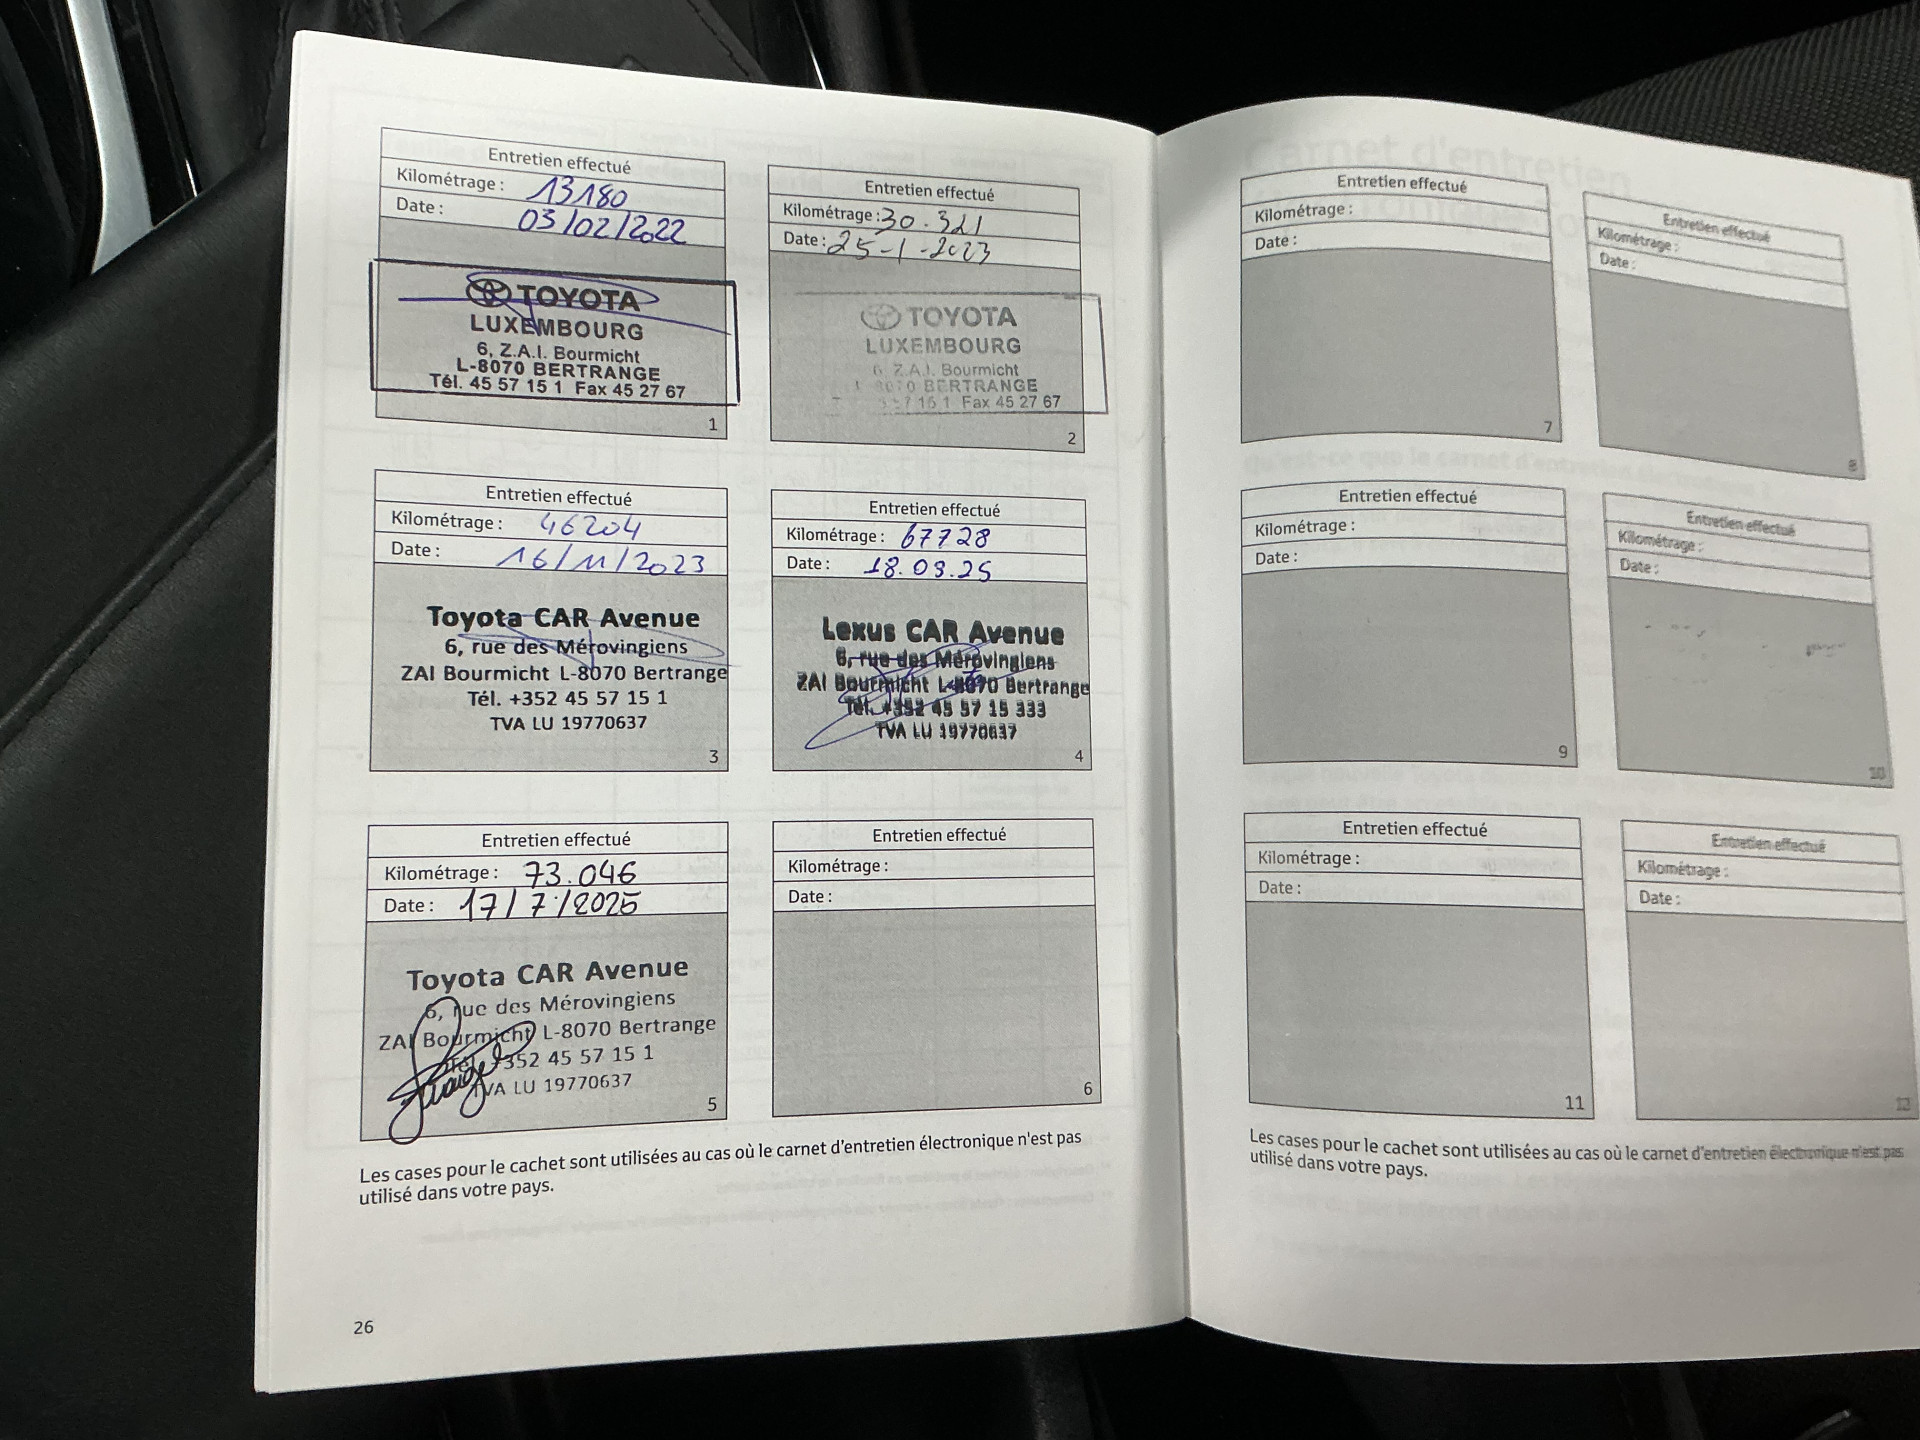 Entretien effectué
Kilométrage : 13180
Date : 03/02/2022
TOYOTA
LUXEMBOURG
6, Z.A.I. Bourmicht
L-8070 BERTRANGE
Tél. 45 57 15 1 Fax 45 27 67
1
Entretien effectué
Kilométrage : 30.321
Date : 25-1-2023
TOYOTA
LUXEMBOURG
6, Z.A.I. Bourmicht
8070 BERTRANGE
Fax 45 27 67
2
Entretien effectué
Kilométrage : 46204
Date : 16/11/2023
Toyota CAR Avenue
6, rue des Mérovingiens
ZAI Bourmicht L-8070 Bertrange
Tél. +352 45 57 15 1
TVA LU 19770637
3
Entretien effectué
Kilométrage : 67728
Date : 18.03.25
Lexus CAR Avenue
6, rue des Mérovingiens
ZAI Bourmicht L-8070 Bertrange
Tél. +352 45 57 15 333
TVA LU 19770637
4
Entretien effectué
Kilométrage : 73.046
Date : 17/7/2025
Toyota CAR Avenue
6, rue des Mérovingiens
ZAI Bourmicht L-8070 Bertrange
Tél. +352 45 57 15 1
TVA LU 19770637
5
Entretien effectué
Kilométrage :
Date :
6
Les cases pour le cachet sont utilisées au cas où le carnet d'entretien électronique n'est pas
utilisé dans votre pays.
26
Entretien effectué
Kilométrage :
Date :
7
Entretien effectué
Kilométrage :
Date :
8
Entretien effectué
Kilométrage :
Date :
9
Entretien effectué
Kilométrage :
Date :
10
Entretien effectué
Kilométrage :
Date :
11
Entretien effectué
Kilométrage :
Date :
12
Les cases pour le cachet sont utilisées au cas où le carnet d'entretien électronique n'est pas
utilisé dans votre pays.